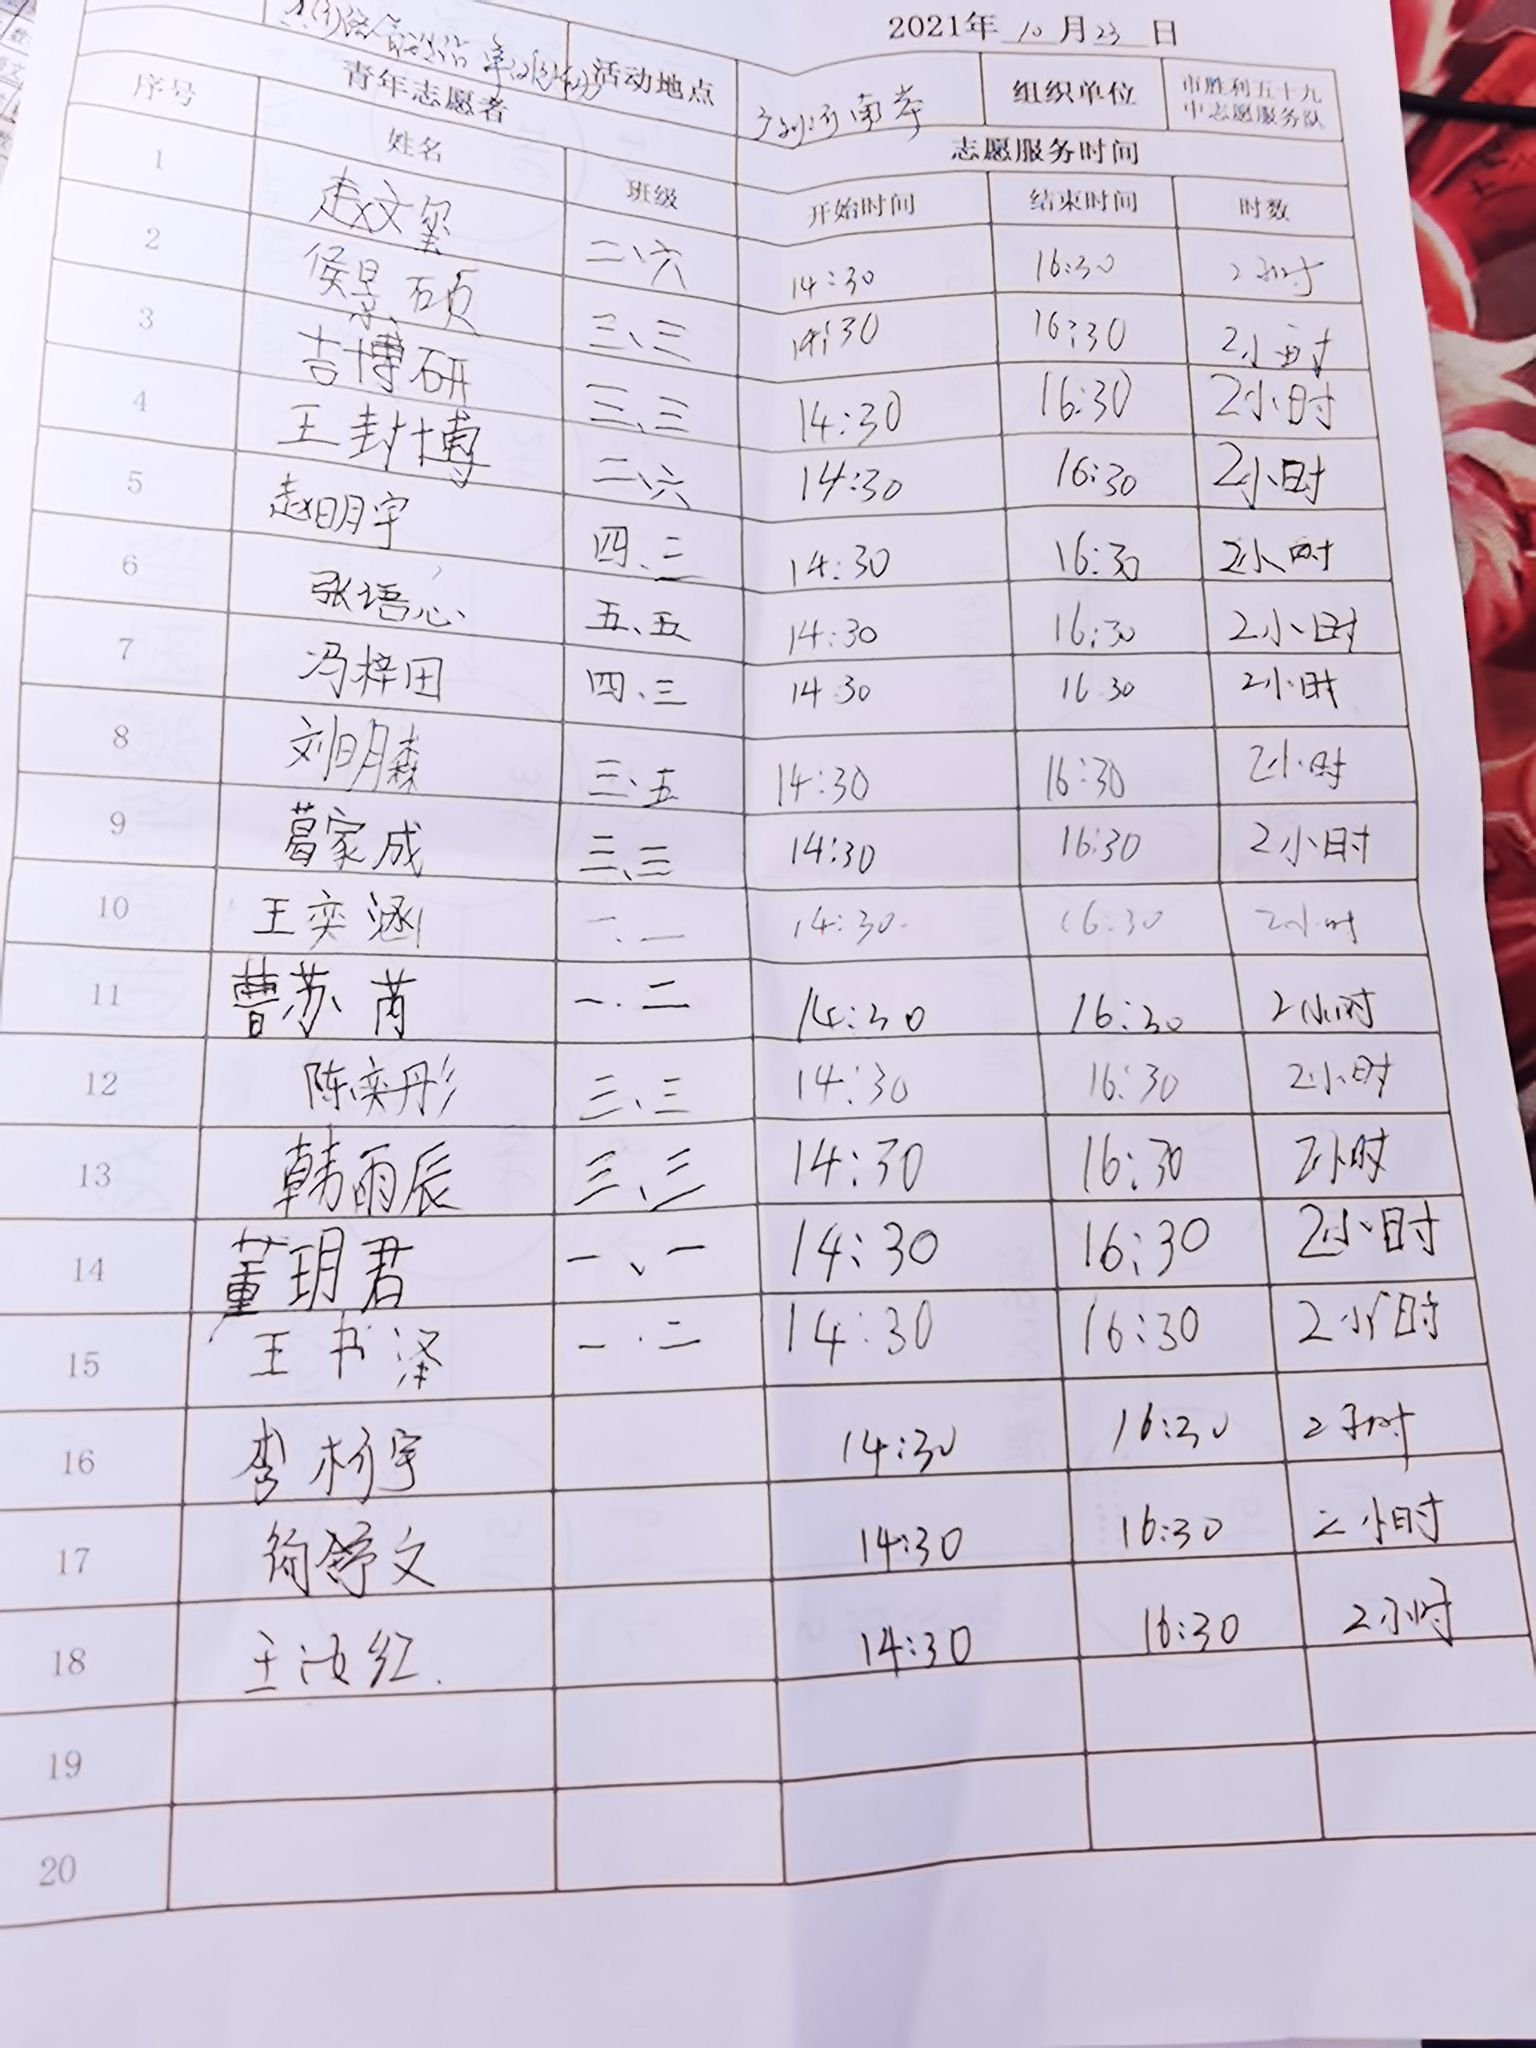 2021年 10 月 23 日
活动地点 南岸 组织单位 市胜利五十九中志愿服务队
序号 青年志愿者 志愿服务时间
姓名 班级 开始时间 结束时间 时数
1 赵文玺 二、六 14:30 16:30 2小时
2 侯景硕 三、三 14:30 16:30 2小时
3 吉博研 三、三 14:30 16:30 2小时
4 王封博 二、六 14:30 16:30 2小时
5 赵明宇 四、二 14:30 16:30 2小时
6 张语心 五、五 14:30 16:30 2小时
7 冯梓田 四、三 14:30 16:30 2小时
8 刘明森 三、五 14:30 16:30 2小时
9 葛家成 三、三 14:30 16:30 2小时
10 王奕涵 一、二 14:30 16:30 2小时
11 曹苏芮 一.二 14:30 16:30 2小时
12 陈奕彤 三、三 14:30 16:30 2小时
13 韩雨辰 三、三 14:30 16:30 2小时
14 董玥君 一、一 14:30 16:30 2小时
15 王书泽 一.二 14:30 16:30 2小时
16 李 宇 14:30 16:30 2小时
17 舒文 14:30 16:30 2小时
18 王汝红. 14:30 16:30 2小时
19
20